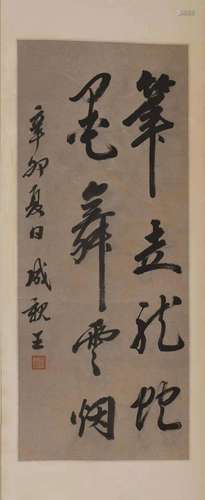 筆走龍蛇
墨舞雲烟
辛卯夏日 成親王